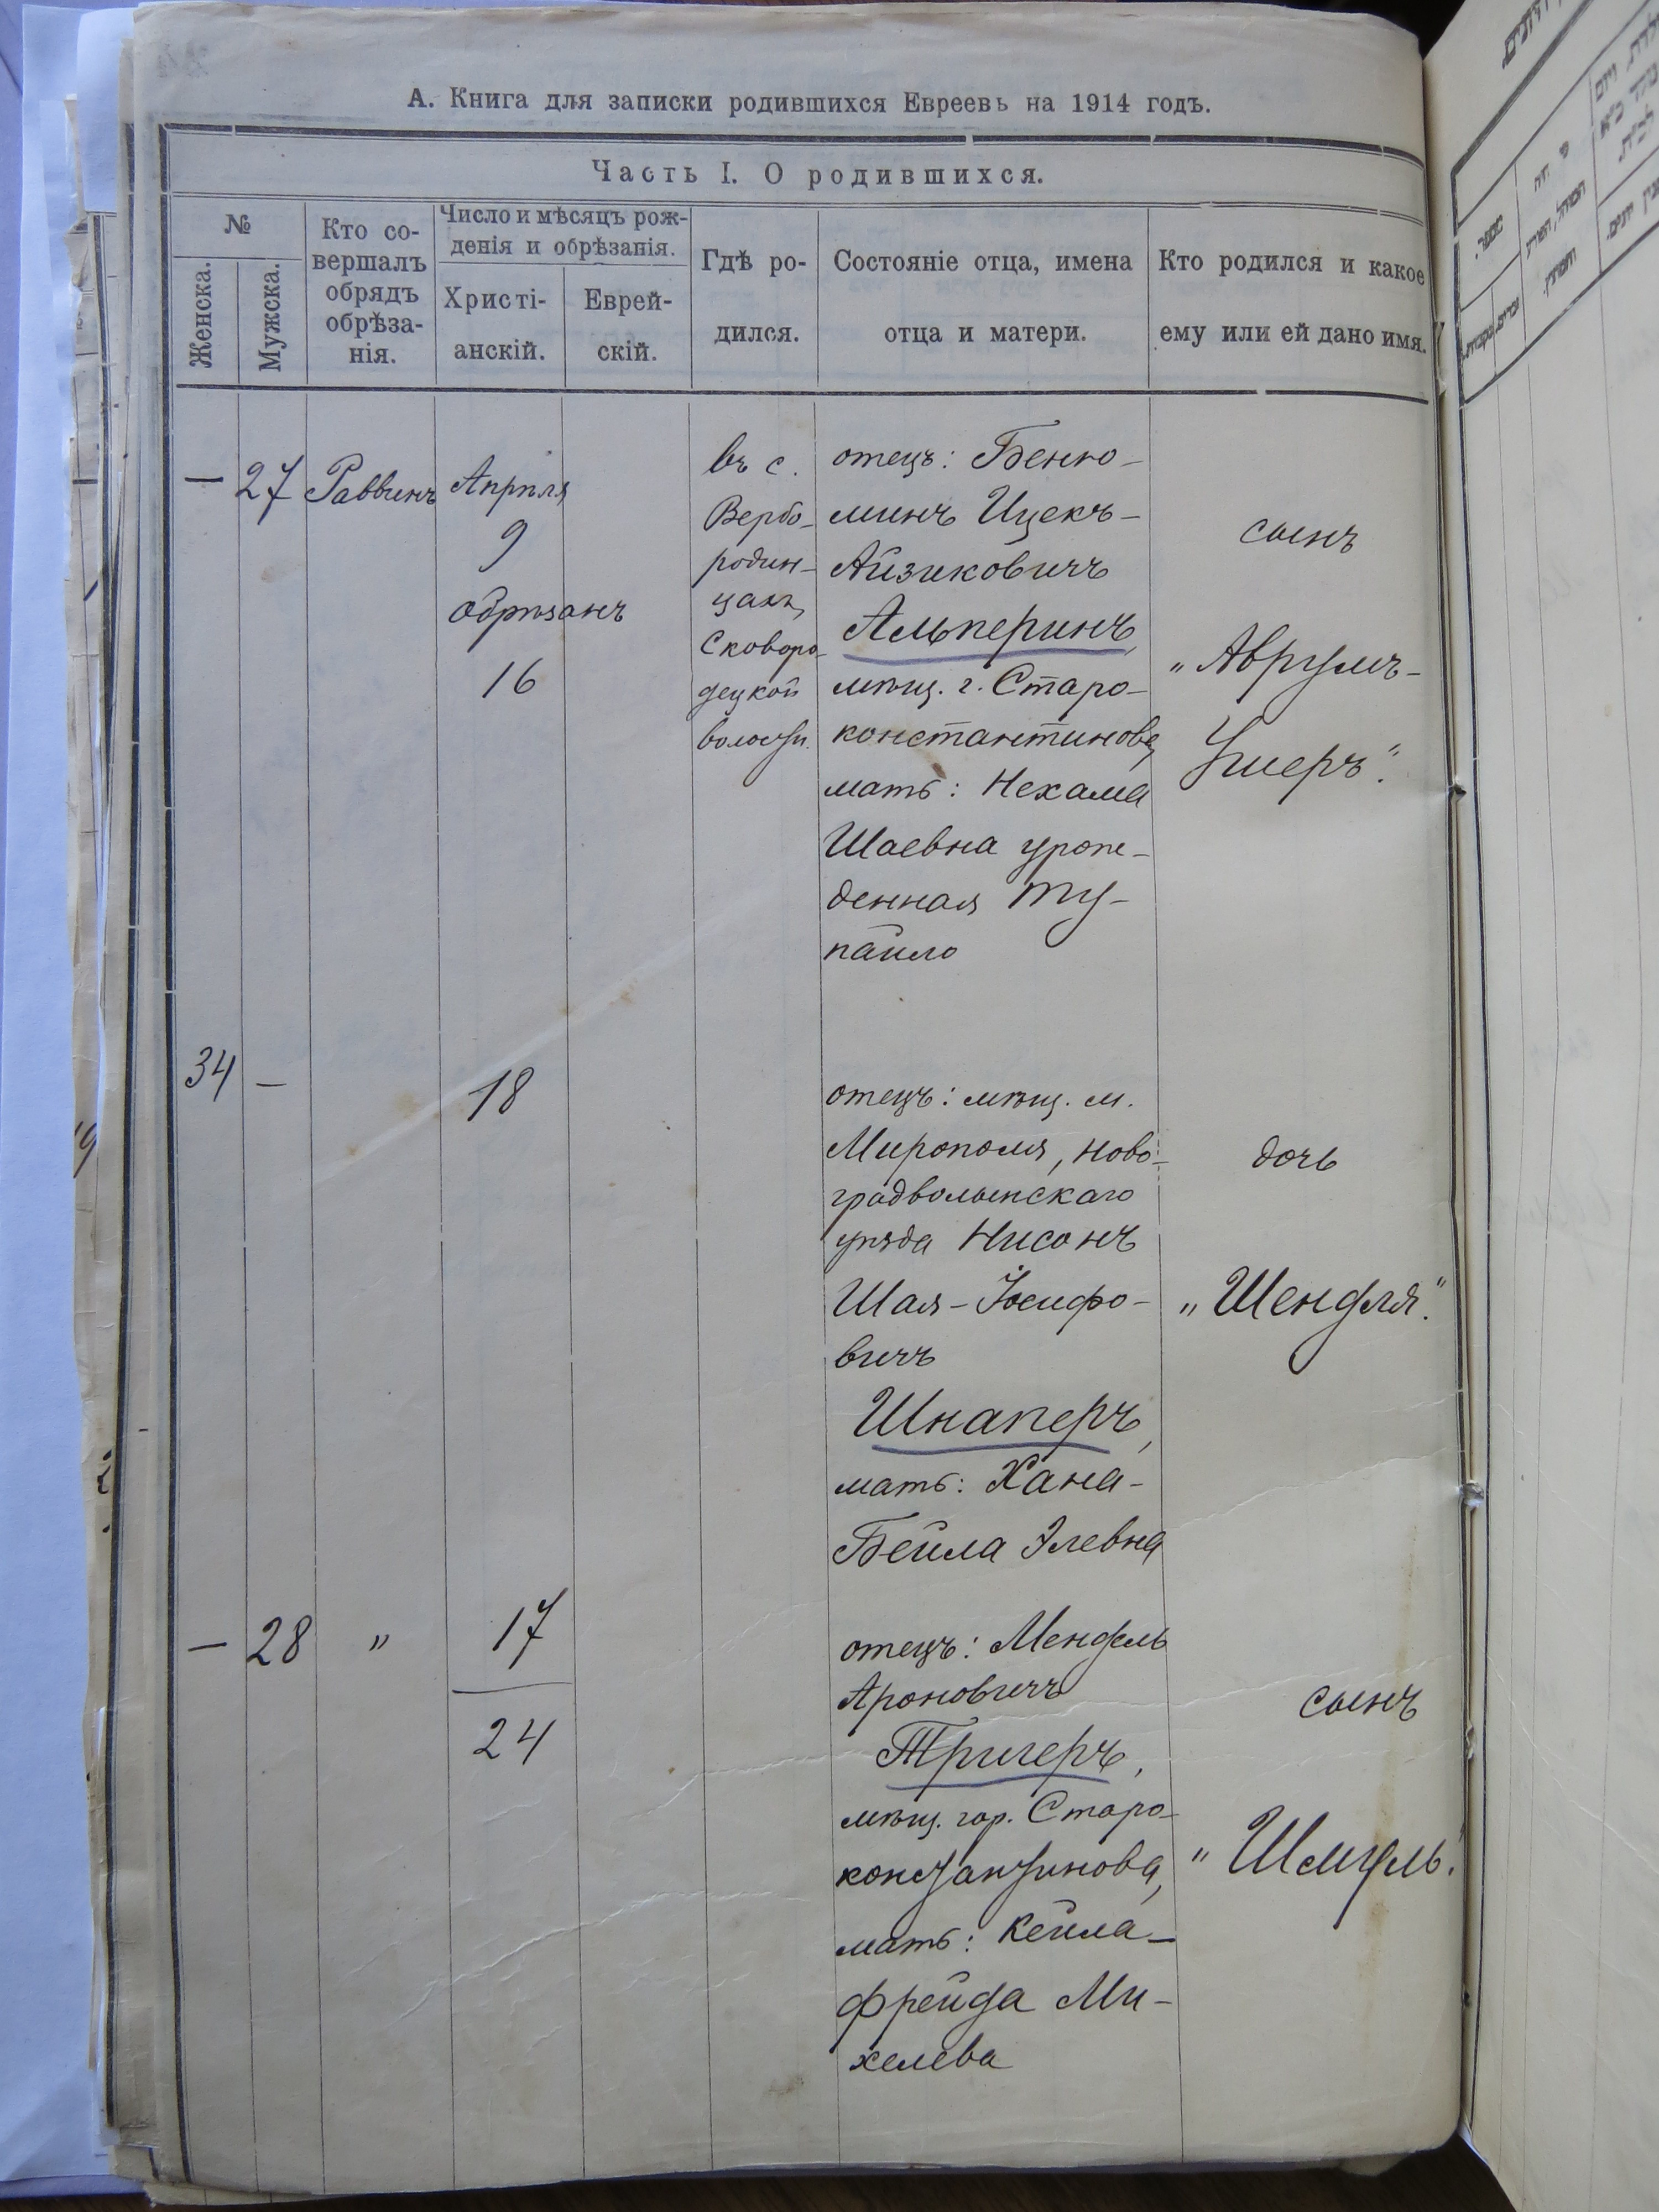 А. Книга для записки родившихся Евреевъ на 1914 годъ.
Часть I. О родившихся.
№
Женска.
Мужска.
Кто со-
вершалъ
обрядъ
обрѣза-
нія.
Число и мѣсяцъ рож-
денія и обрѣзанія.
Христі-
анскій.
Еврей-
скій.
Гдѣ ро-
дился.
Состояніе отца, имена
отца и матери.
Кто родился и какое
ему или ей дано имя.
— 27 Раввинъ
Апрѣля
9
обрѣзанъ
16
въ с.
Вербо-
родин-
цахъ,
Сковоро-
децкой
волости.
отецъ: Беню-
минъ Ицекъ-
Айзиковичъ
Альперинъ,
мѣщ. г. Старо-
константинова,
мать: Нехама
Шаевна урож-
денная Ту-
пайло
сынъ
„Аврумъ-
Ушеръ“.
34 —
18
отецъ: мѣщ. м.
Мирополя, Ново-
градволынскаго
уѣзда Нисонъ
Шая-Іосифо-
вичъ
Шнаперъ,
мать: Хана-
Бейла Элевна
дочь
„Шендля“.
— 28 "
17
24
отецъ: Мендель
Ароновичъ
Тригеръ,
мѣщ. гор. Старо-
константинова,
мать: Кейла-
Фрейда Ми-
хелева
сынъ
„Шмуль“.